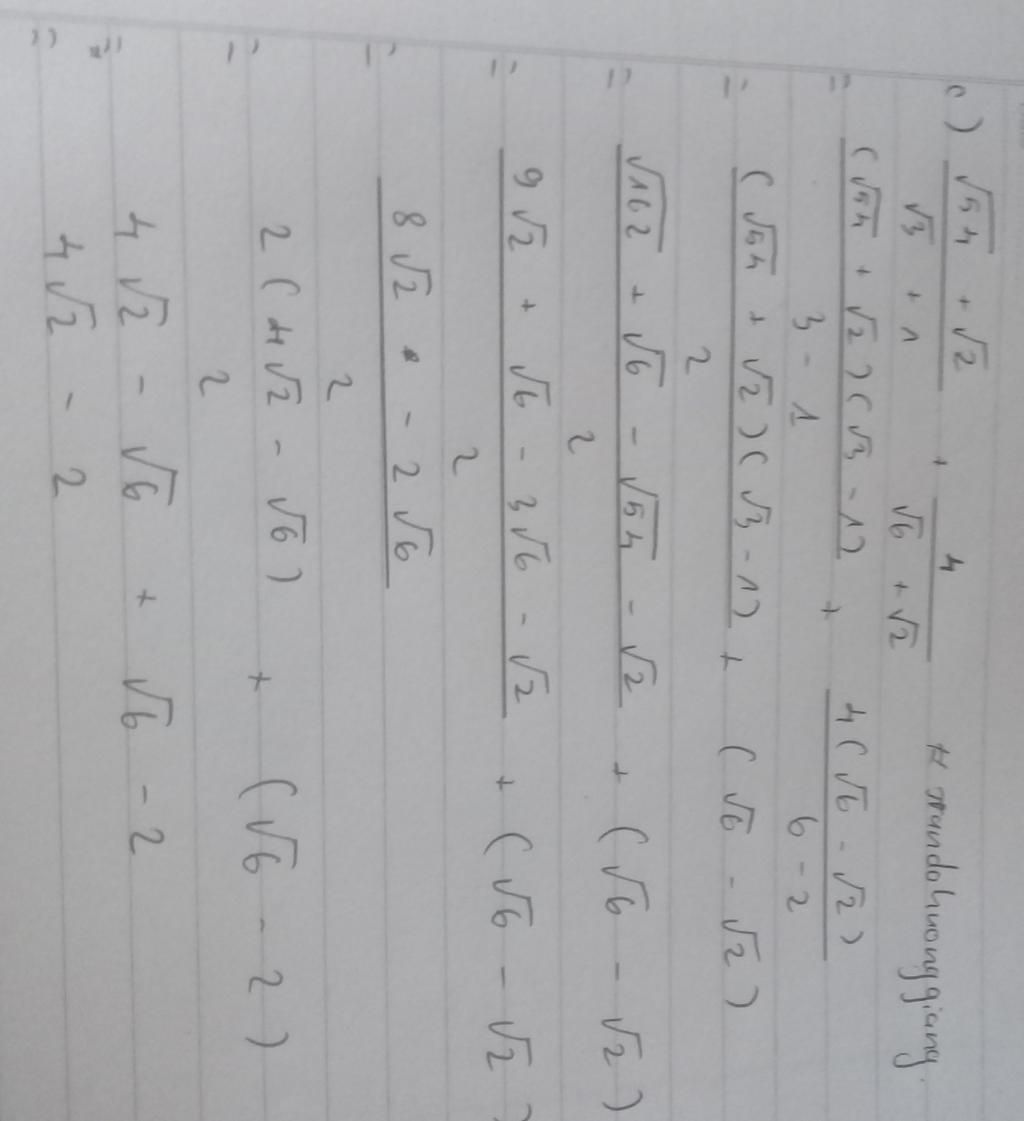 c) (√54 + √2)/(√3 + 1) + 4/(√6 + √2) # trandohuonggiang
= (√54 + √2)(√3 - 1)/(3 - 1) + 4(√6 - √2)/(6 - 2)
= (√54 + √2)(√3 - 1)/2 + (√6 - √2)
= (√162 + √6 - √54 - √2)/2 + (√6 - √2)
= (9√2 + √6 - 3√6 - √2)/2 + (√6 - √2)
= (8√2 - 2√6)/2
= 2(4√2 - √6)/2 + (√6 - 2)
= 4√2 - √6 + √6 - 2
= 4√2 - 2